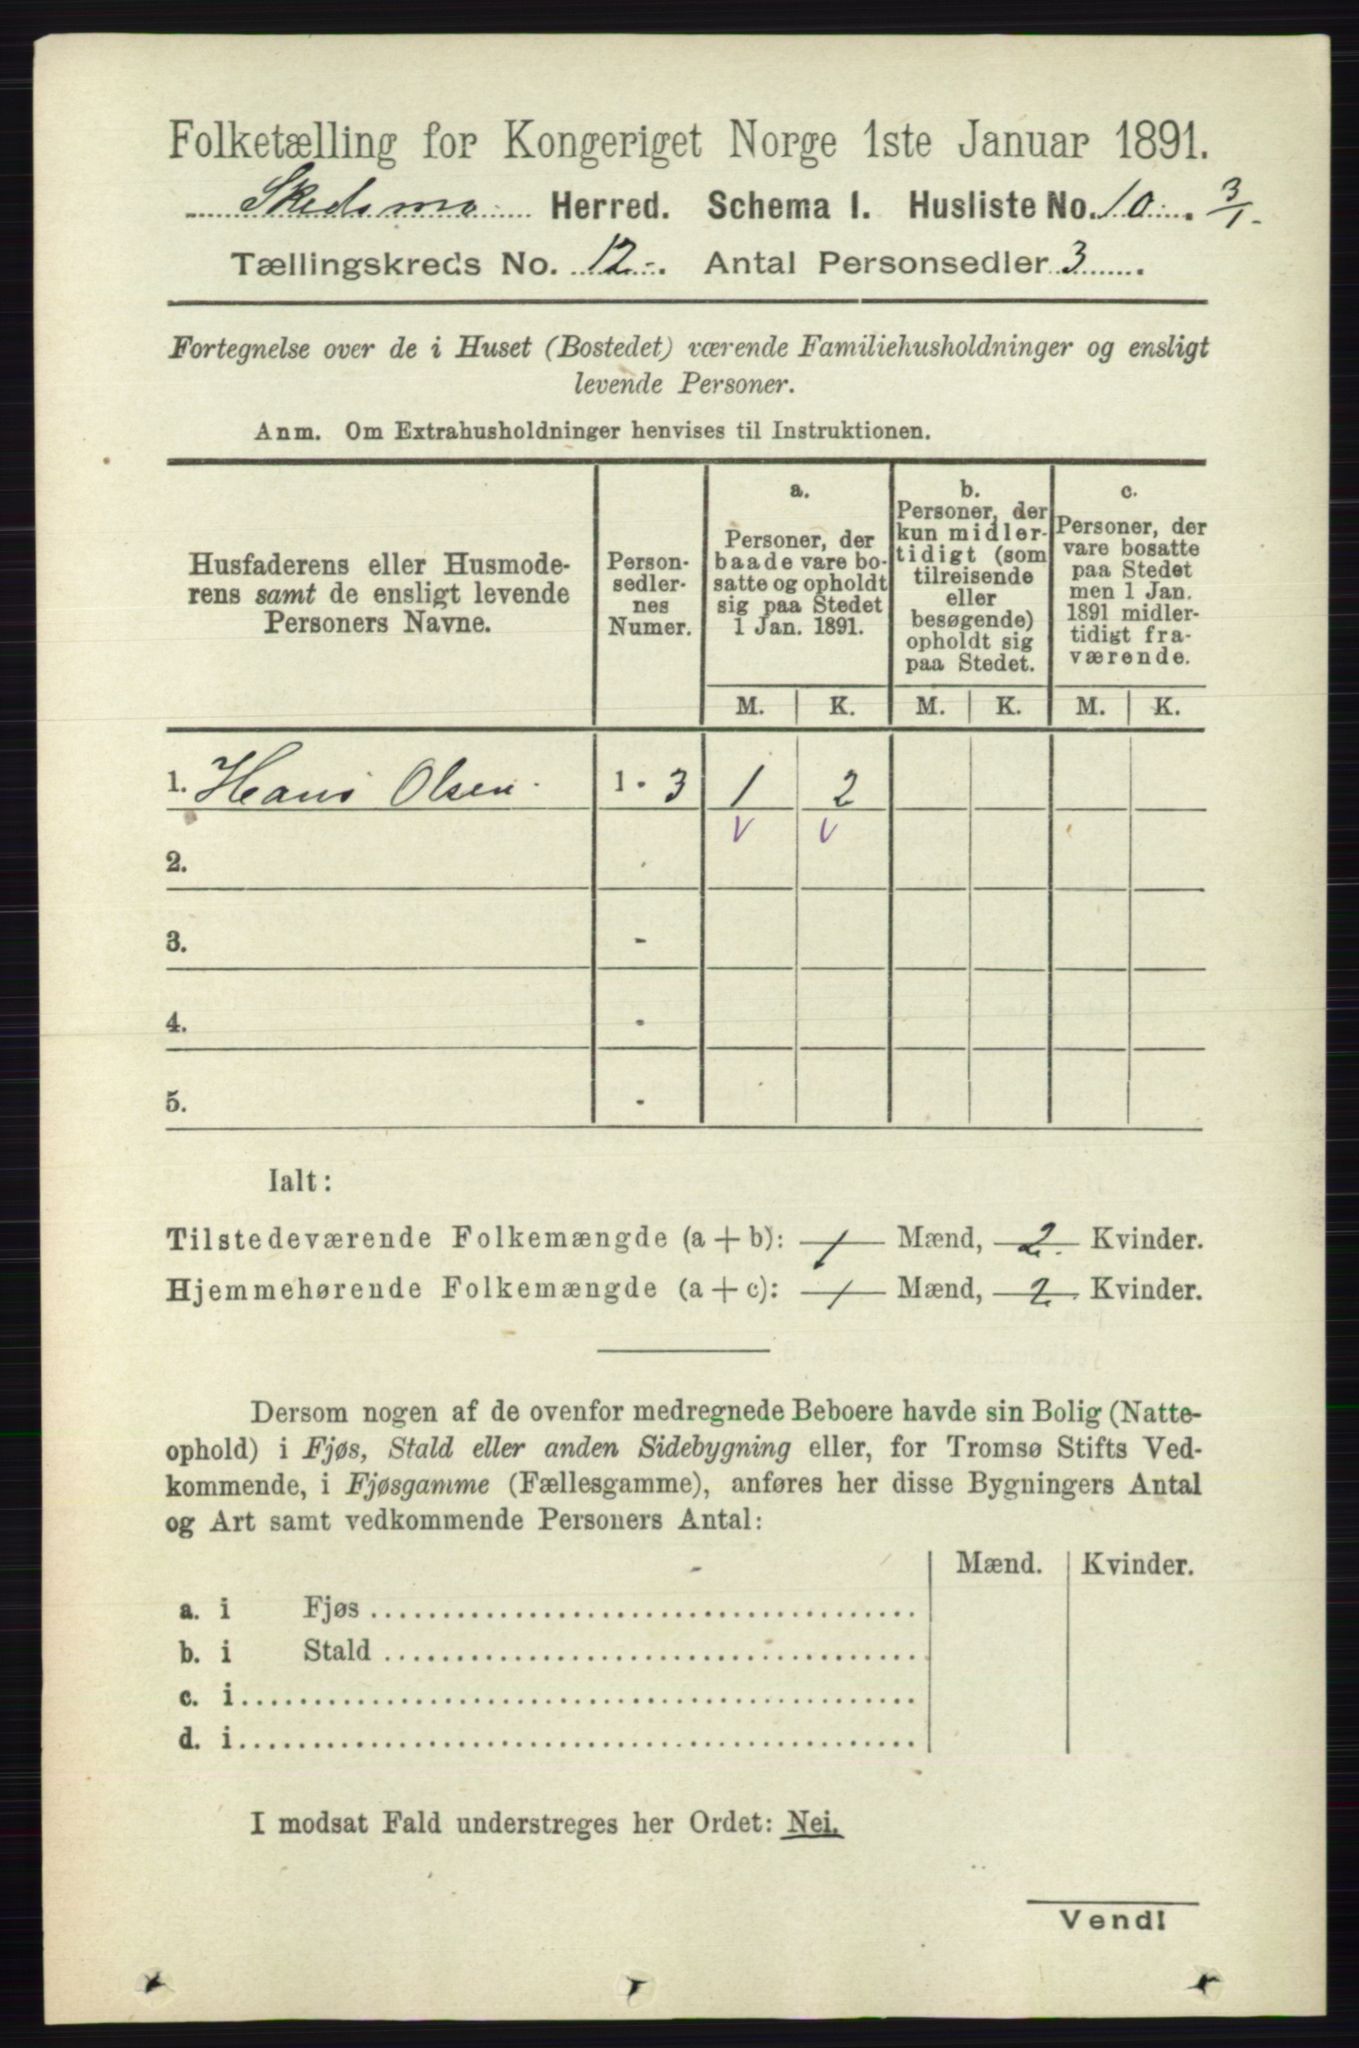 Folketælling for Kongeriget Norge 1ste Januar 1891.
Skedsmo Herred. Schema I. Husliste No. 10. 3/1.
Tællingskreds No. 12. Antal Personsedler 3
Fortegnelse over de i Huset (Bostedet) værende Familiehusholdninger og ensligt
levende Personer.
Anm. Om Extrahusholdninger henvises til Instruktionen.
Husfaderens eller Husmode-
rens samt de ensligt levende
Personers Navne.
Person-
sedler-
nes
Numer.
a.
Personer, der
baade vare bo-
satte og opholdt
sig paa Stedet
1 Jan. 1891.
b.
Personer, der
kun midler-
tidigt (som
tilreisende
eller
besøgende)
opholdt sig
paa Stedet.
c.
Personer, der
vare bosatte
paa Stedet
men 1 Jan.
1891 midler-
tidigt fra-
værende.
M. K. M. K. M. K.
1. Hans Olsen. 1 - 3 1 2
v v
2. -
3. -
4. -
5. -
Ialt:
Tilstedeværende Folkemængde (a + b): 1 Mænd, 2. Kvinder.
Hjemmehørende Folkemængde (a + c): 1 Mænd, 2. Kvinder.
Dersom nogen af de ovenfor medregnede Beboere havde sin Bolig (Natte-
ophold) i Fjøs, Stald eller anden Sidebygning eller, for Tromsø Stifts Ved-
kommende, i Fjøsgamme (Fællesgamme), anføres her disse Bygningers Antal
og Art samt vedkommende Personers Antal:
Mænd. Kvinder.
a. i Fjøs
b. i Stald
c. i
d. i
I modsat Fald understreges her Ordet: Nei.
Vend!